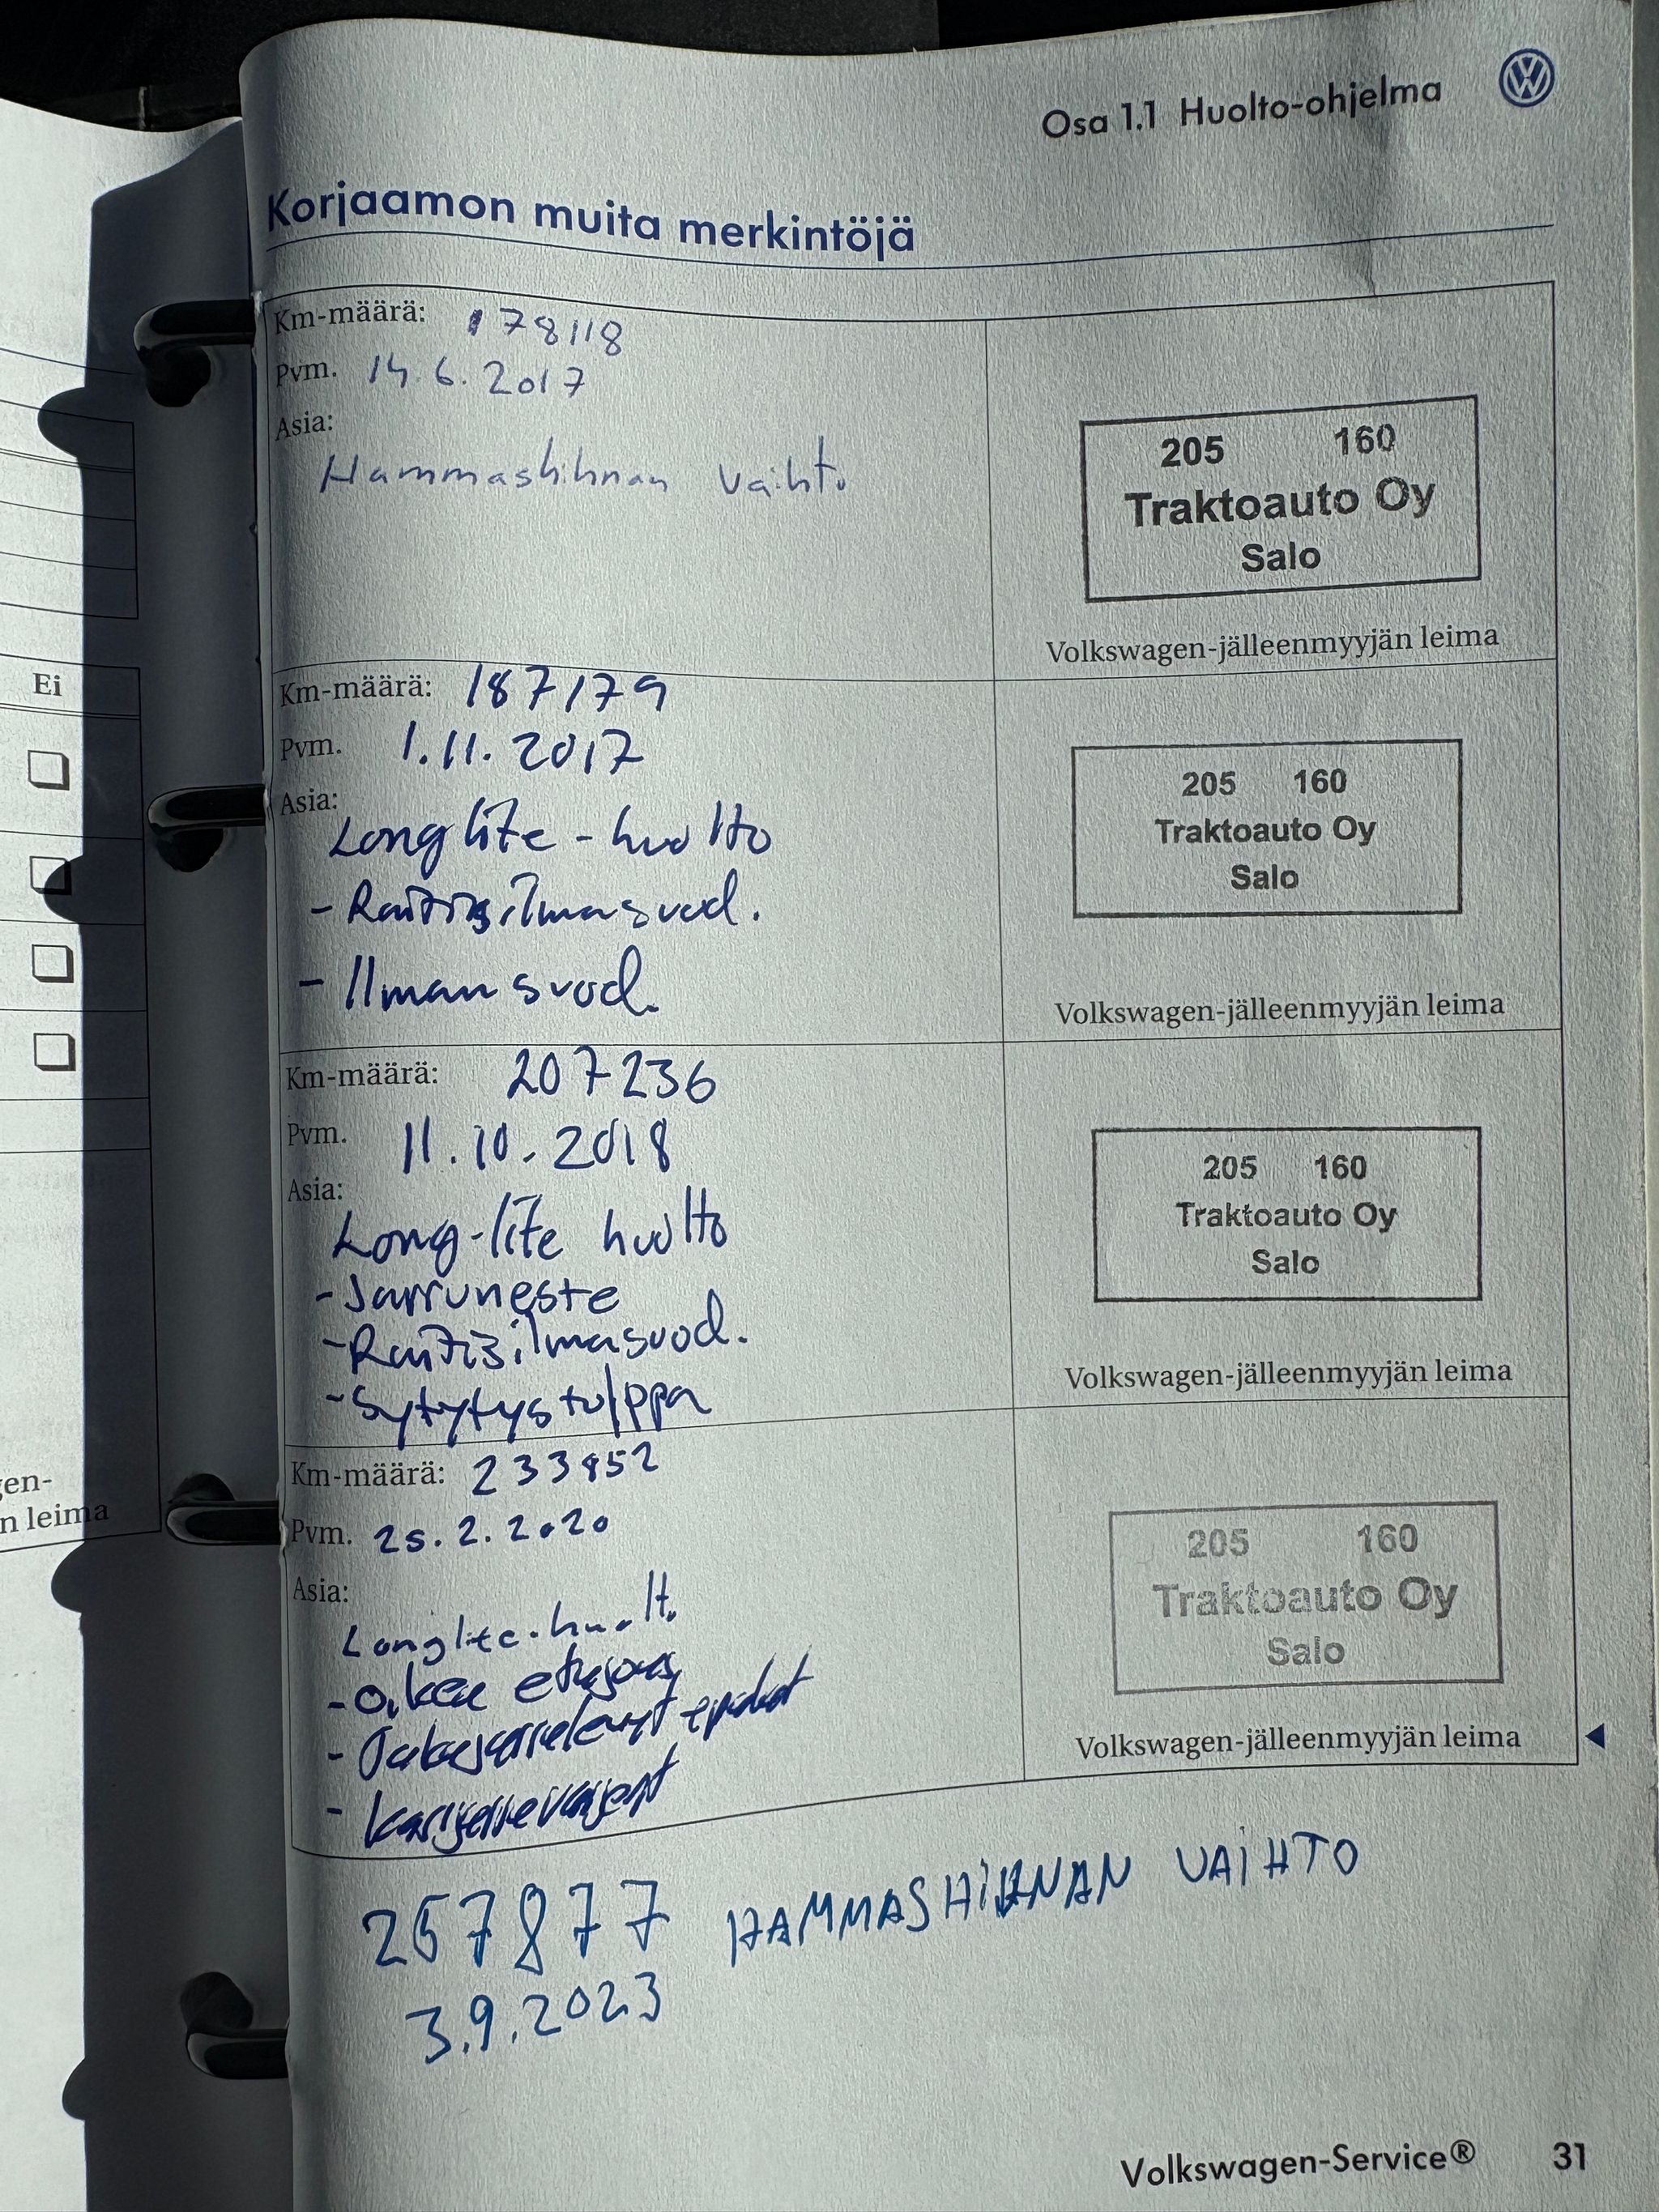 Osa 1.1 Huolto-ohjelma
Korjaamon muita merkintöjä
Km-määrä: 178118
Pvm. 14.6.2017
Asia:
Hammashihnan vaihto
205 160
Traktoauto Oy
Salo
Volkswagen-jälleenmyyjän leima
Km-määrä: 187179
Pvm. 1.11.2017
Asia:
Longlife-huolto
- Raitisilmasuod.
- Ilmansuod.
205 160
Traktoauto Oy
Salo
Volkswagen-jälleenmyyjän leima
Km-määrä: 207236
Pvm. 11.10.2018
Asia:
Long-life huolto
- Jarruneste
- Raitisilmasuod.
- Sytytystulppa
205 160
Traktoauto Oy
Salo
Volkswagen-jälleenmyyjän leima
Km-määrä: 233852
Pvm. 25.2.2020
Asia:
Longlife-huolto
- Oikea etujousi
205 160
Traktoauto Oy
Salo
Volkswagen-jälleenmyyjän leima
267877 HAMMASHIHNAN VAIHTO
3.9.2023
Volkswagen-Service® 31
Ei
gen-
n leima